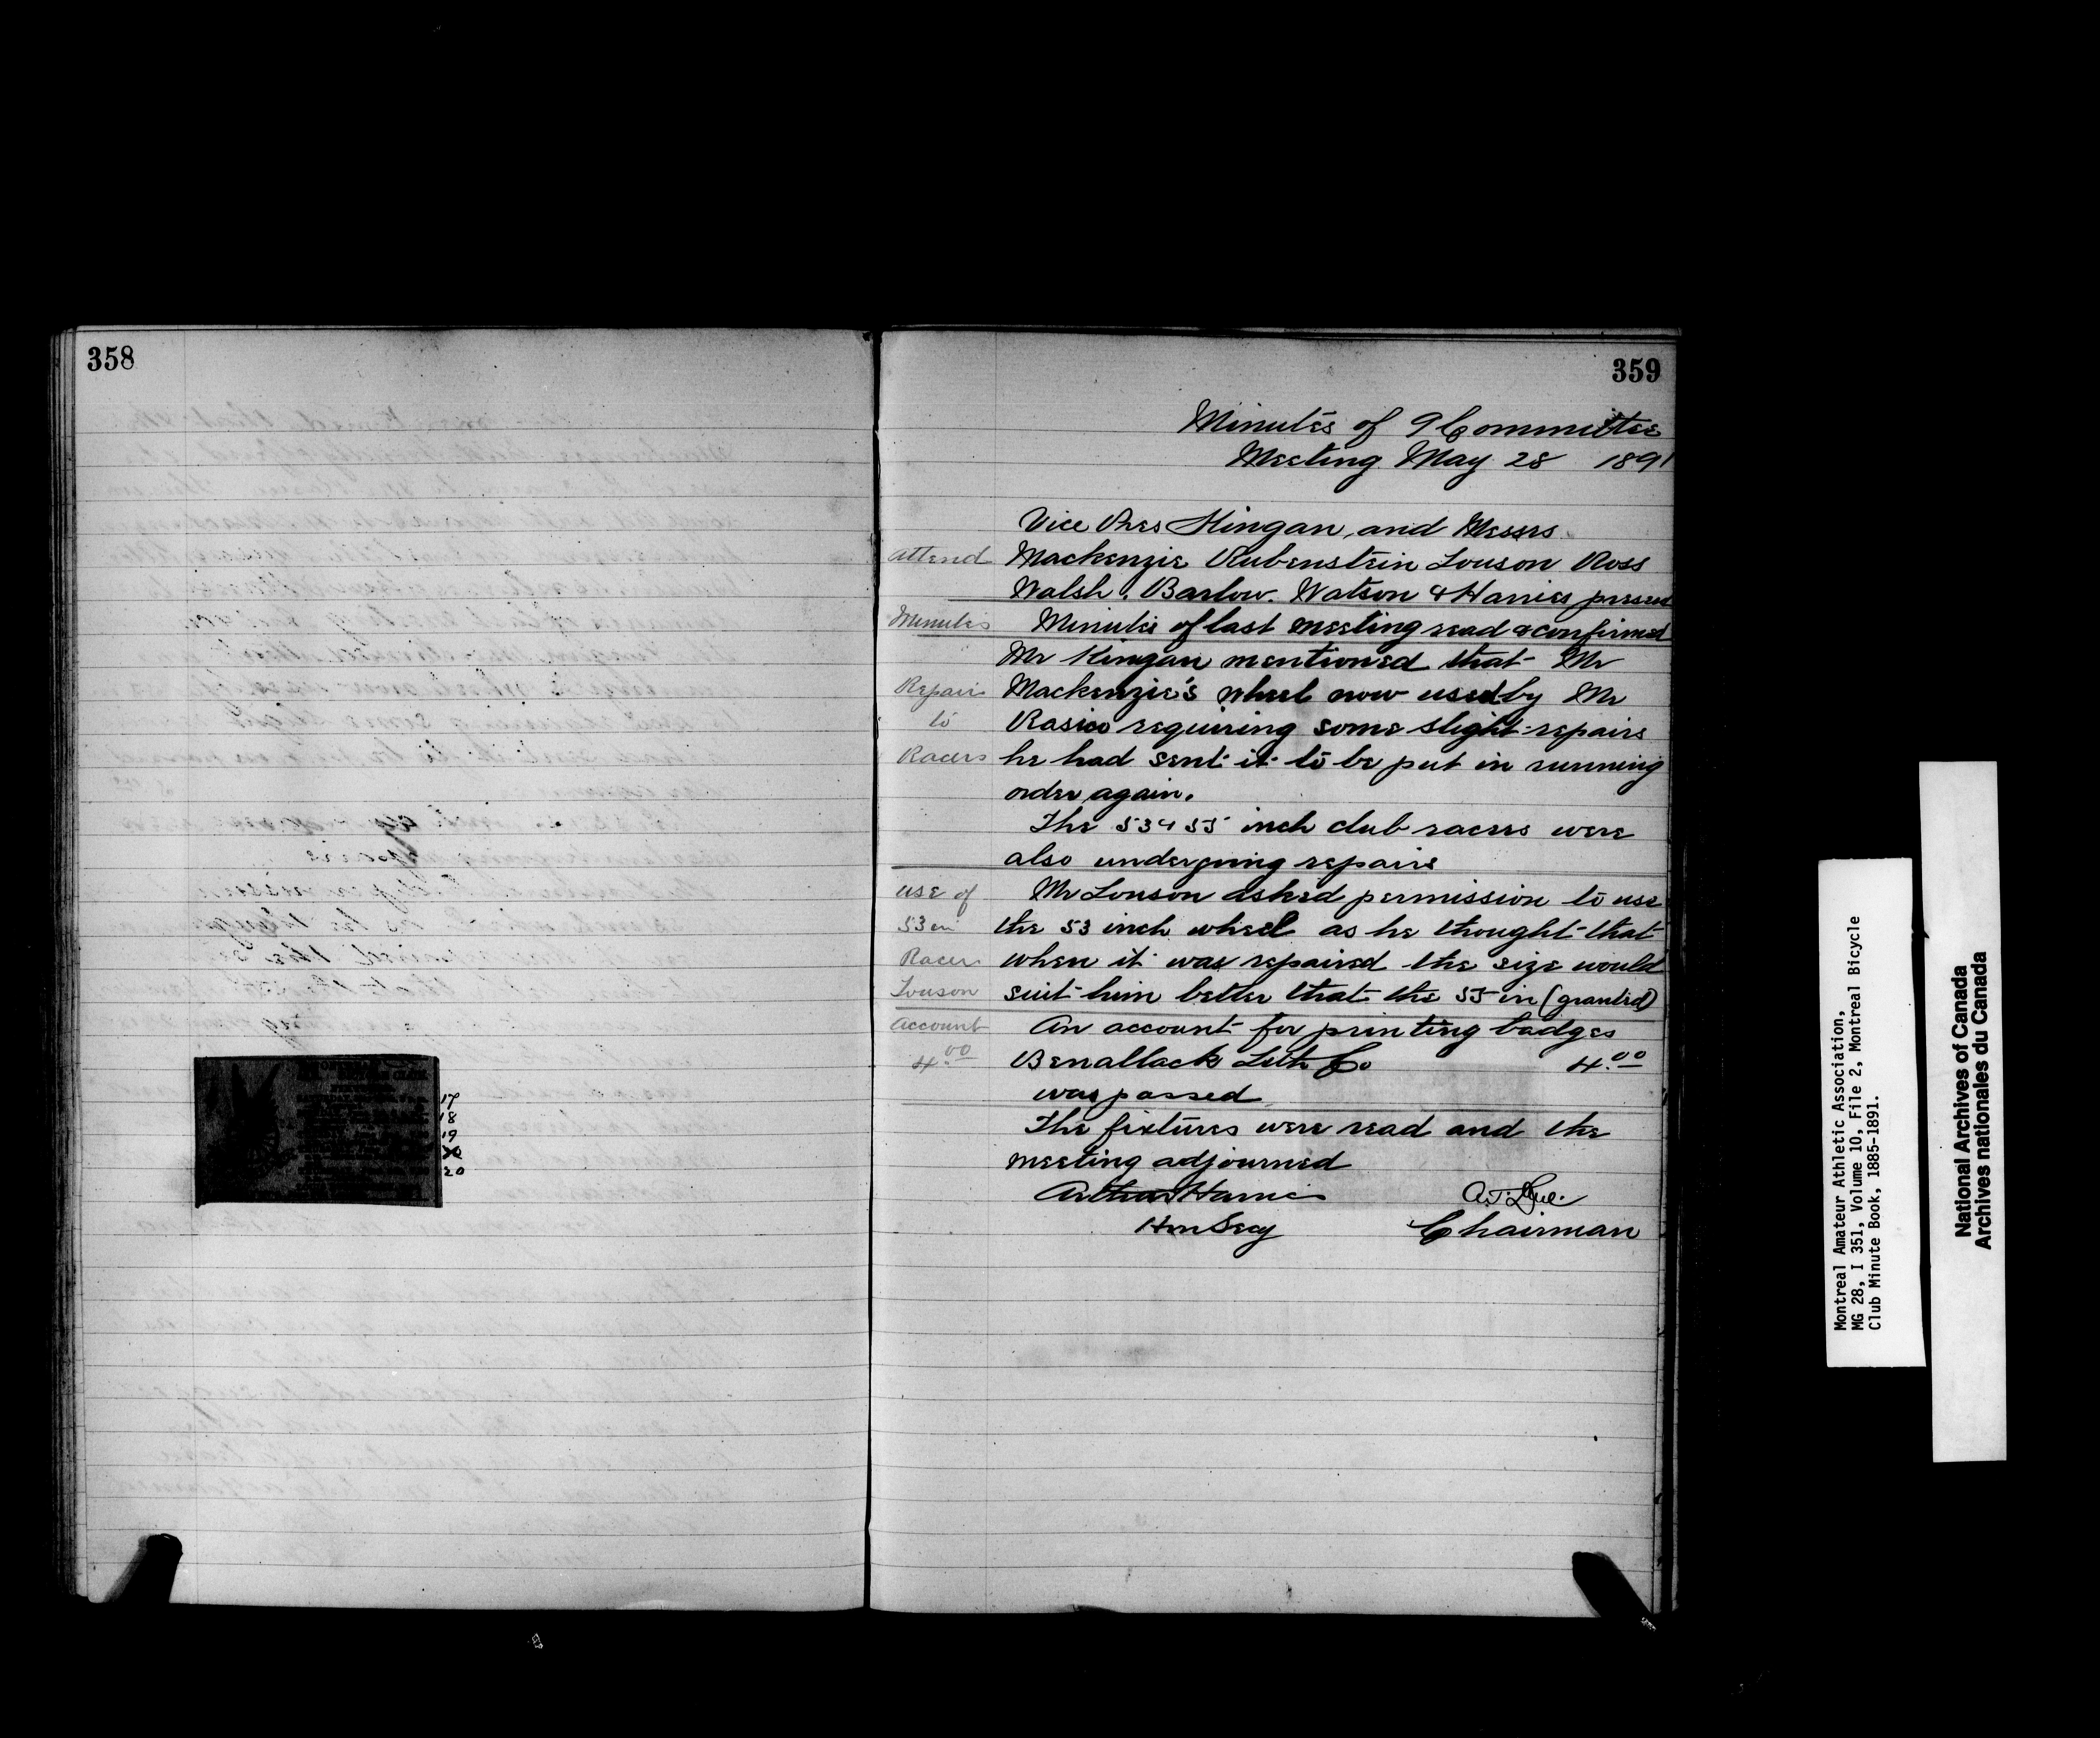 358
17
18
19
20
359
Minutes of 9 Committee
Meeting May 28 1891
Vice Pres Kingan, and Messrs
Attend Mackenzie Rubenstein Louson Ross
Walsh. Barlow. Watson & Harries present
Minutes Minutes of last meeting read & confirmed
Mr Kingan mentioned that Mr
Repair Mackenzie's wheel now used by Mr
to Rasico requiring some slight repairs
Racers he had sent it to be put in running
order again.
The 53 & 55 inch club racers were
also undergoing repairs
use of Mr Louson asked permission to use
53 in the 53 inch wheel as he thought that
Racer when it was repaired the size would
Louson suit him better that the 55 in (granted)
Account An account for printing badges
4.00 Benallack Lith Co 4.00
was passed
The fixtures were read and the
meeting adjourned
Arthur Harries
Hon Secy Chairman
Montreal Amateur Athletic Association,
MG 28, I 351, Volume 10, File 2, Montreal Bicycle
Club Minute Book, 1885-1891.
National Archives of Canada
Archives nationales du Canada